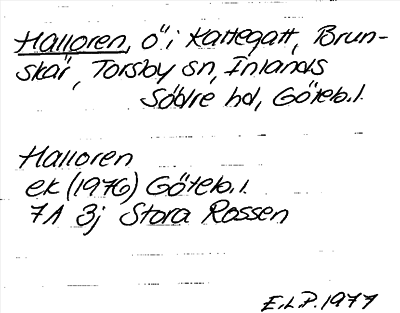 Halloren, ö i Kattegatt, Brun-
skär, Torsby sn, Inlands
Södre hd, Göteb. l.
Halloren
ek (1976) Göteb. l.
7A 3j Stora Rossen
E.L.P. 1977